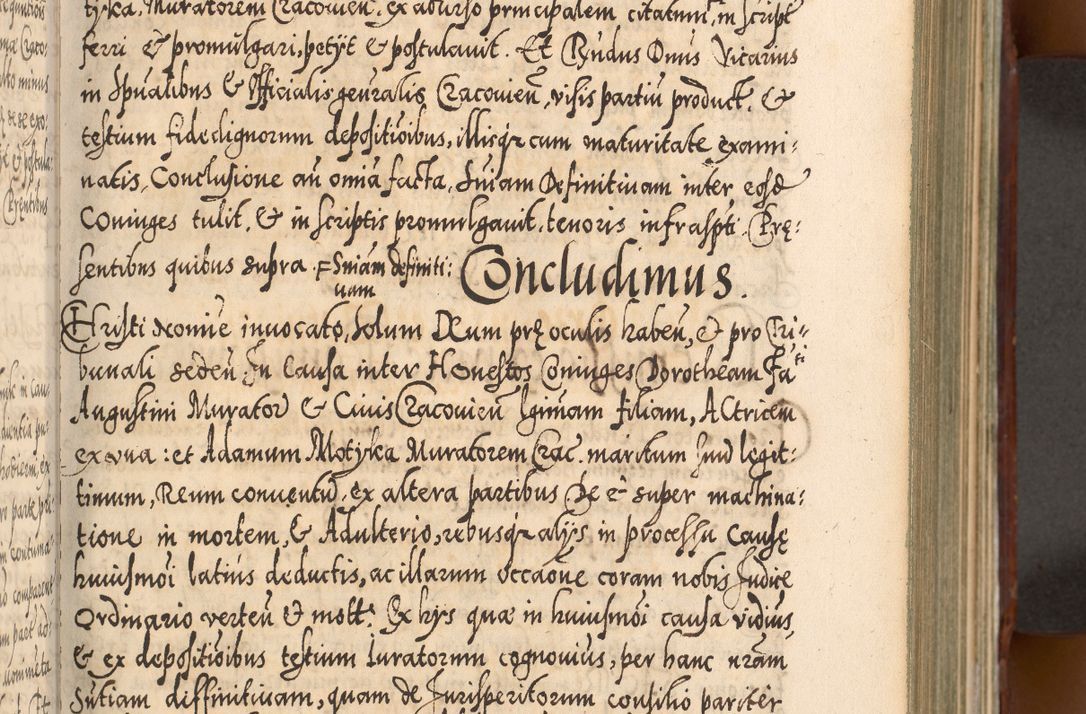 tyka, Muratorem Cracovien̄, ex adverso principalem citatum, in script
ferri & promulgari, petÿt & postulavit. Et R̄ndus Dnus Vicarius
in Sp̄ualibus & Officialis gen̄ralis Cracovien̄, visis partiū product. &
testium fidedignorum depositioībus, illisq̢ cum maturitate exami:
natis, Conclusione aū om̄ia facta, Sn̄iam Definitivam inter eosd
Coniuges tulit, & in scriptis promulgavit, tenoris infrasp̄ti. Prę:
sentibus quibus supra. Sn̄iam definiti:
vam
Concludimus.
CHristi Nomīe invocato, Solum DEum prę oculis haben̄, & pro Tri:
bunali Seden̄, In Causa inter Honestos Coniuges Dorotheam Fati
Augustini Murator & Civis Cracovien̄ lgīmam filiam, ACtricem
ex una: et Adamum Motyka Muratorem Crac. maritum Suū legit:
timum, Reum conventū, ex altera partibus De & super machina:
tione in mortem, & Adulterio, rebusq̢ alÿs in processu Causę
huiusmōi latius deductis, ac illarum occāone coram nobis Judice
Ordinario verten̄ & mott: Ex hÿs quæ in huiusmōi causa vidīus,
& ex depositioībus testium Iuratorum cognovīus, per hanc nr̄am
Sn̄tiam diffinitivam, quam de Jurisperitorum consilio pariter